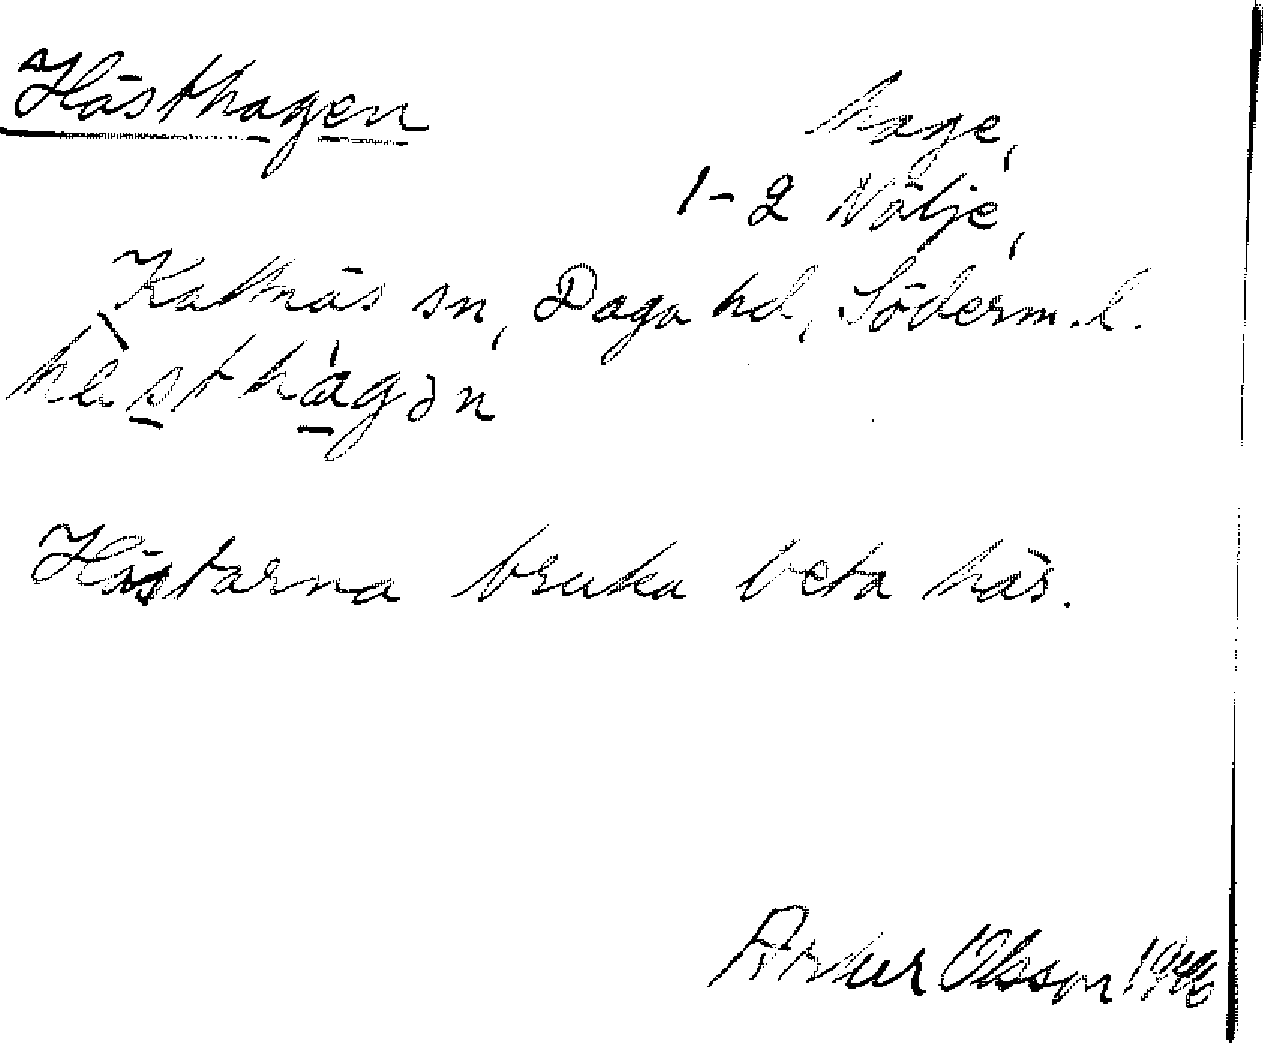 Hästhagen
hage,
1-2 Nälje,
Kattnäs sn, Daga hd, Söderm. l.
hä̀sthágən
Hästarna bruka beta här.
Artur Olsson 1946